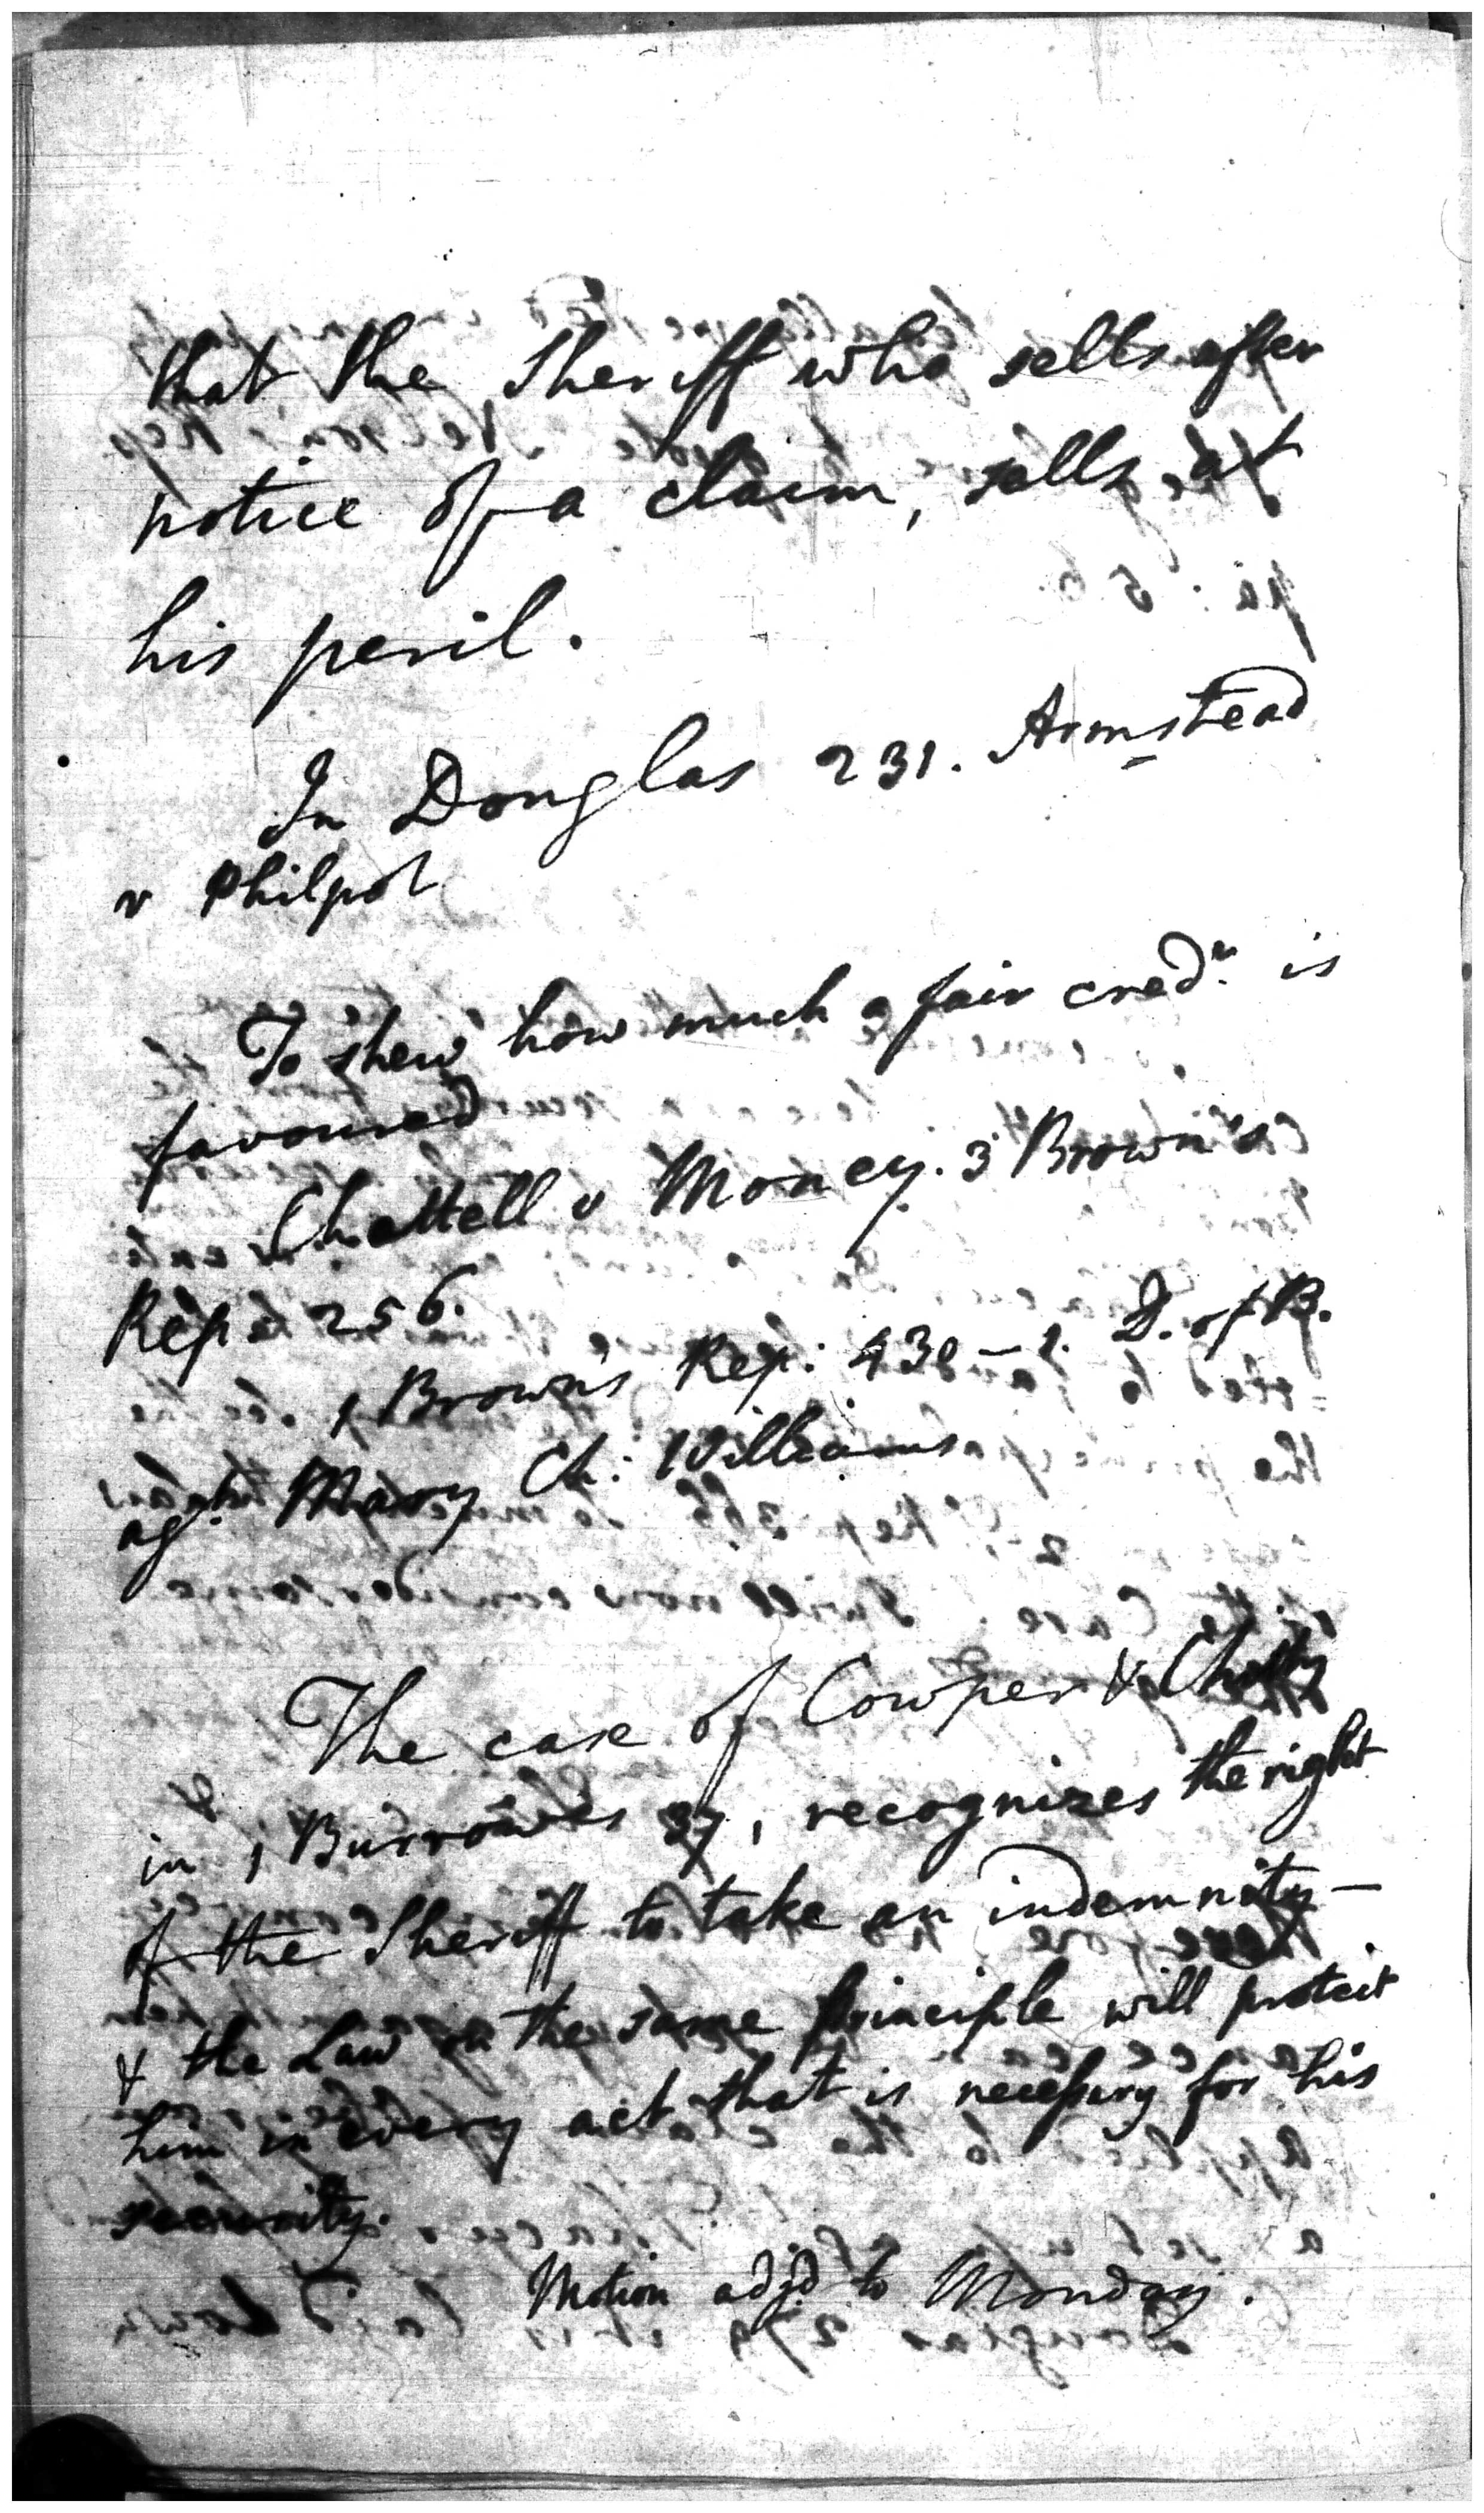 that the Sheriff who sells after
notice of a claim, sells at
his peril.
In Douglas 231. Armstead
v Philpot
To shew how much a fair credr. is
favoured
Chettell v Money. 3 Brown's
Reps 256.
1 Brown's Rep: 438 - 1. D. of B.
agt. Mary Ch: Williams
The case of Cowper & Chitty
in 1 Burrowes 37, recognizes the right
of the Sheriff to take an indemnity —
& the Law on the same principle will protect
him in every act that is necessary for his
security.
Motion adjd to Monday.